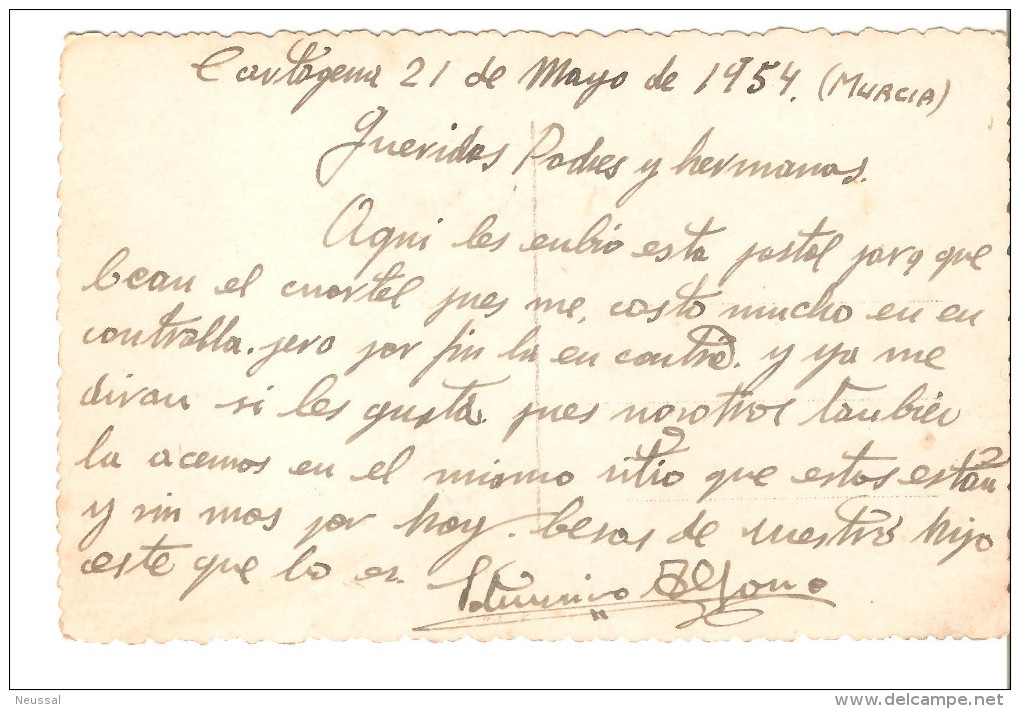 Cartagena 21 de Mayo de 1954. (MURCIA)
Queridos Padres y hermanos.
Aqui les enbio esta postal para que
bean el cuartel pues me, costo mucho en en
contralla. pero por fin la en contré. y ya me
diran si les gusta. pues nosotros tanbien
la acemos en el mismo sitio que estos están
y sin mas por hoy. besos de vuestro hijo
este que lo es.
Neussal
www.delcampe.net